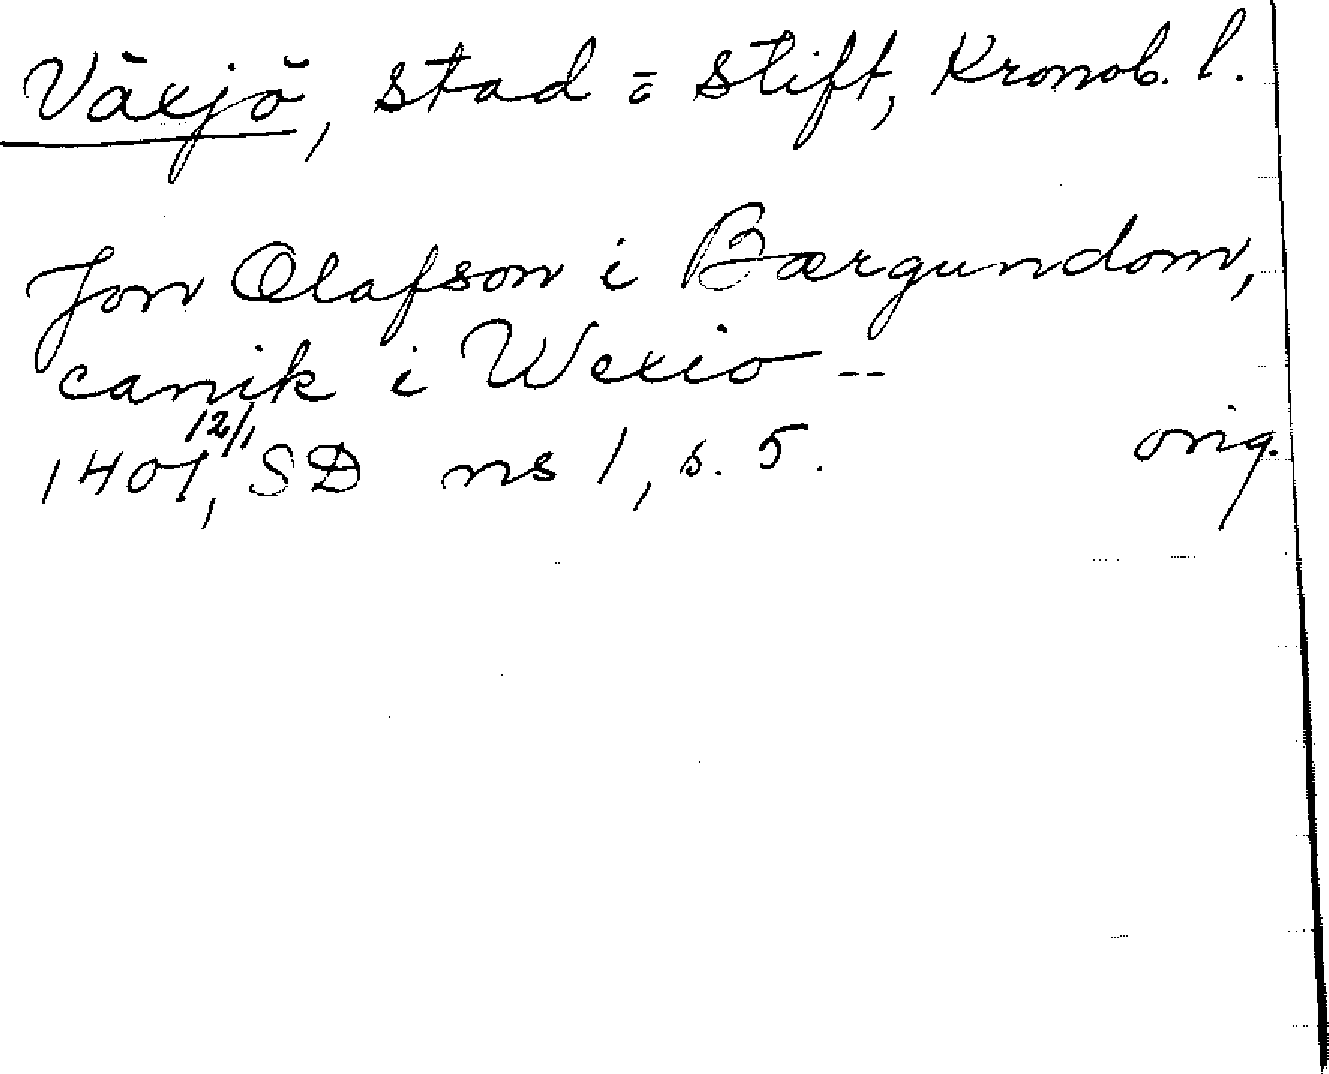 Växjö, stad = stift, Kronob. l.
Jon Olafson i Bærgundom,
canik i Wexio --
1401 12/1, SD ns 1, s. 5. orig.